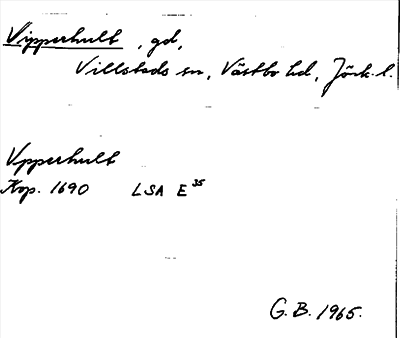 Vipperhult, gd,
Villstads sn, Västbo hd, Jönk. l.
Vpperhult
Kop. 1690 LSA E 35
G. B. 1965.